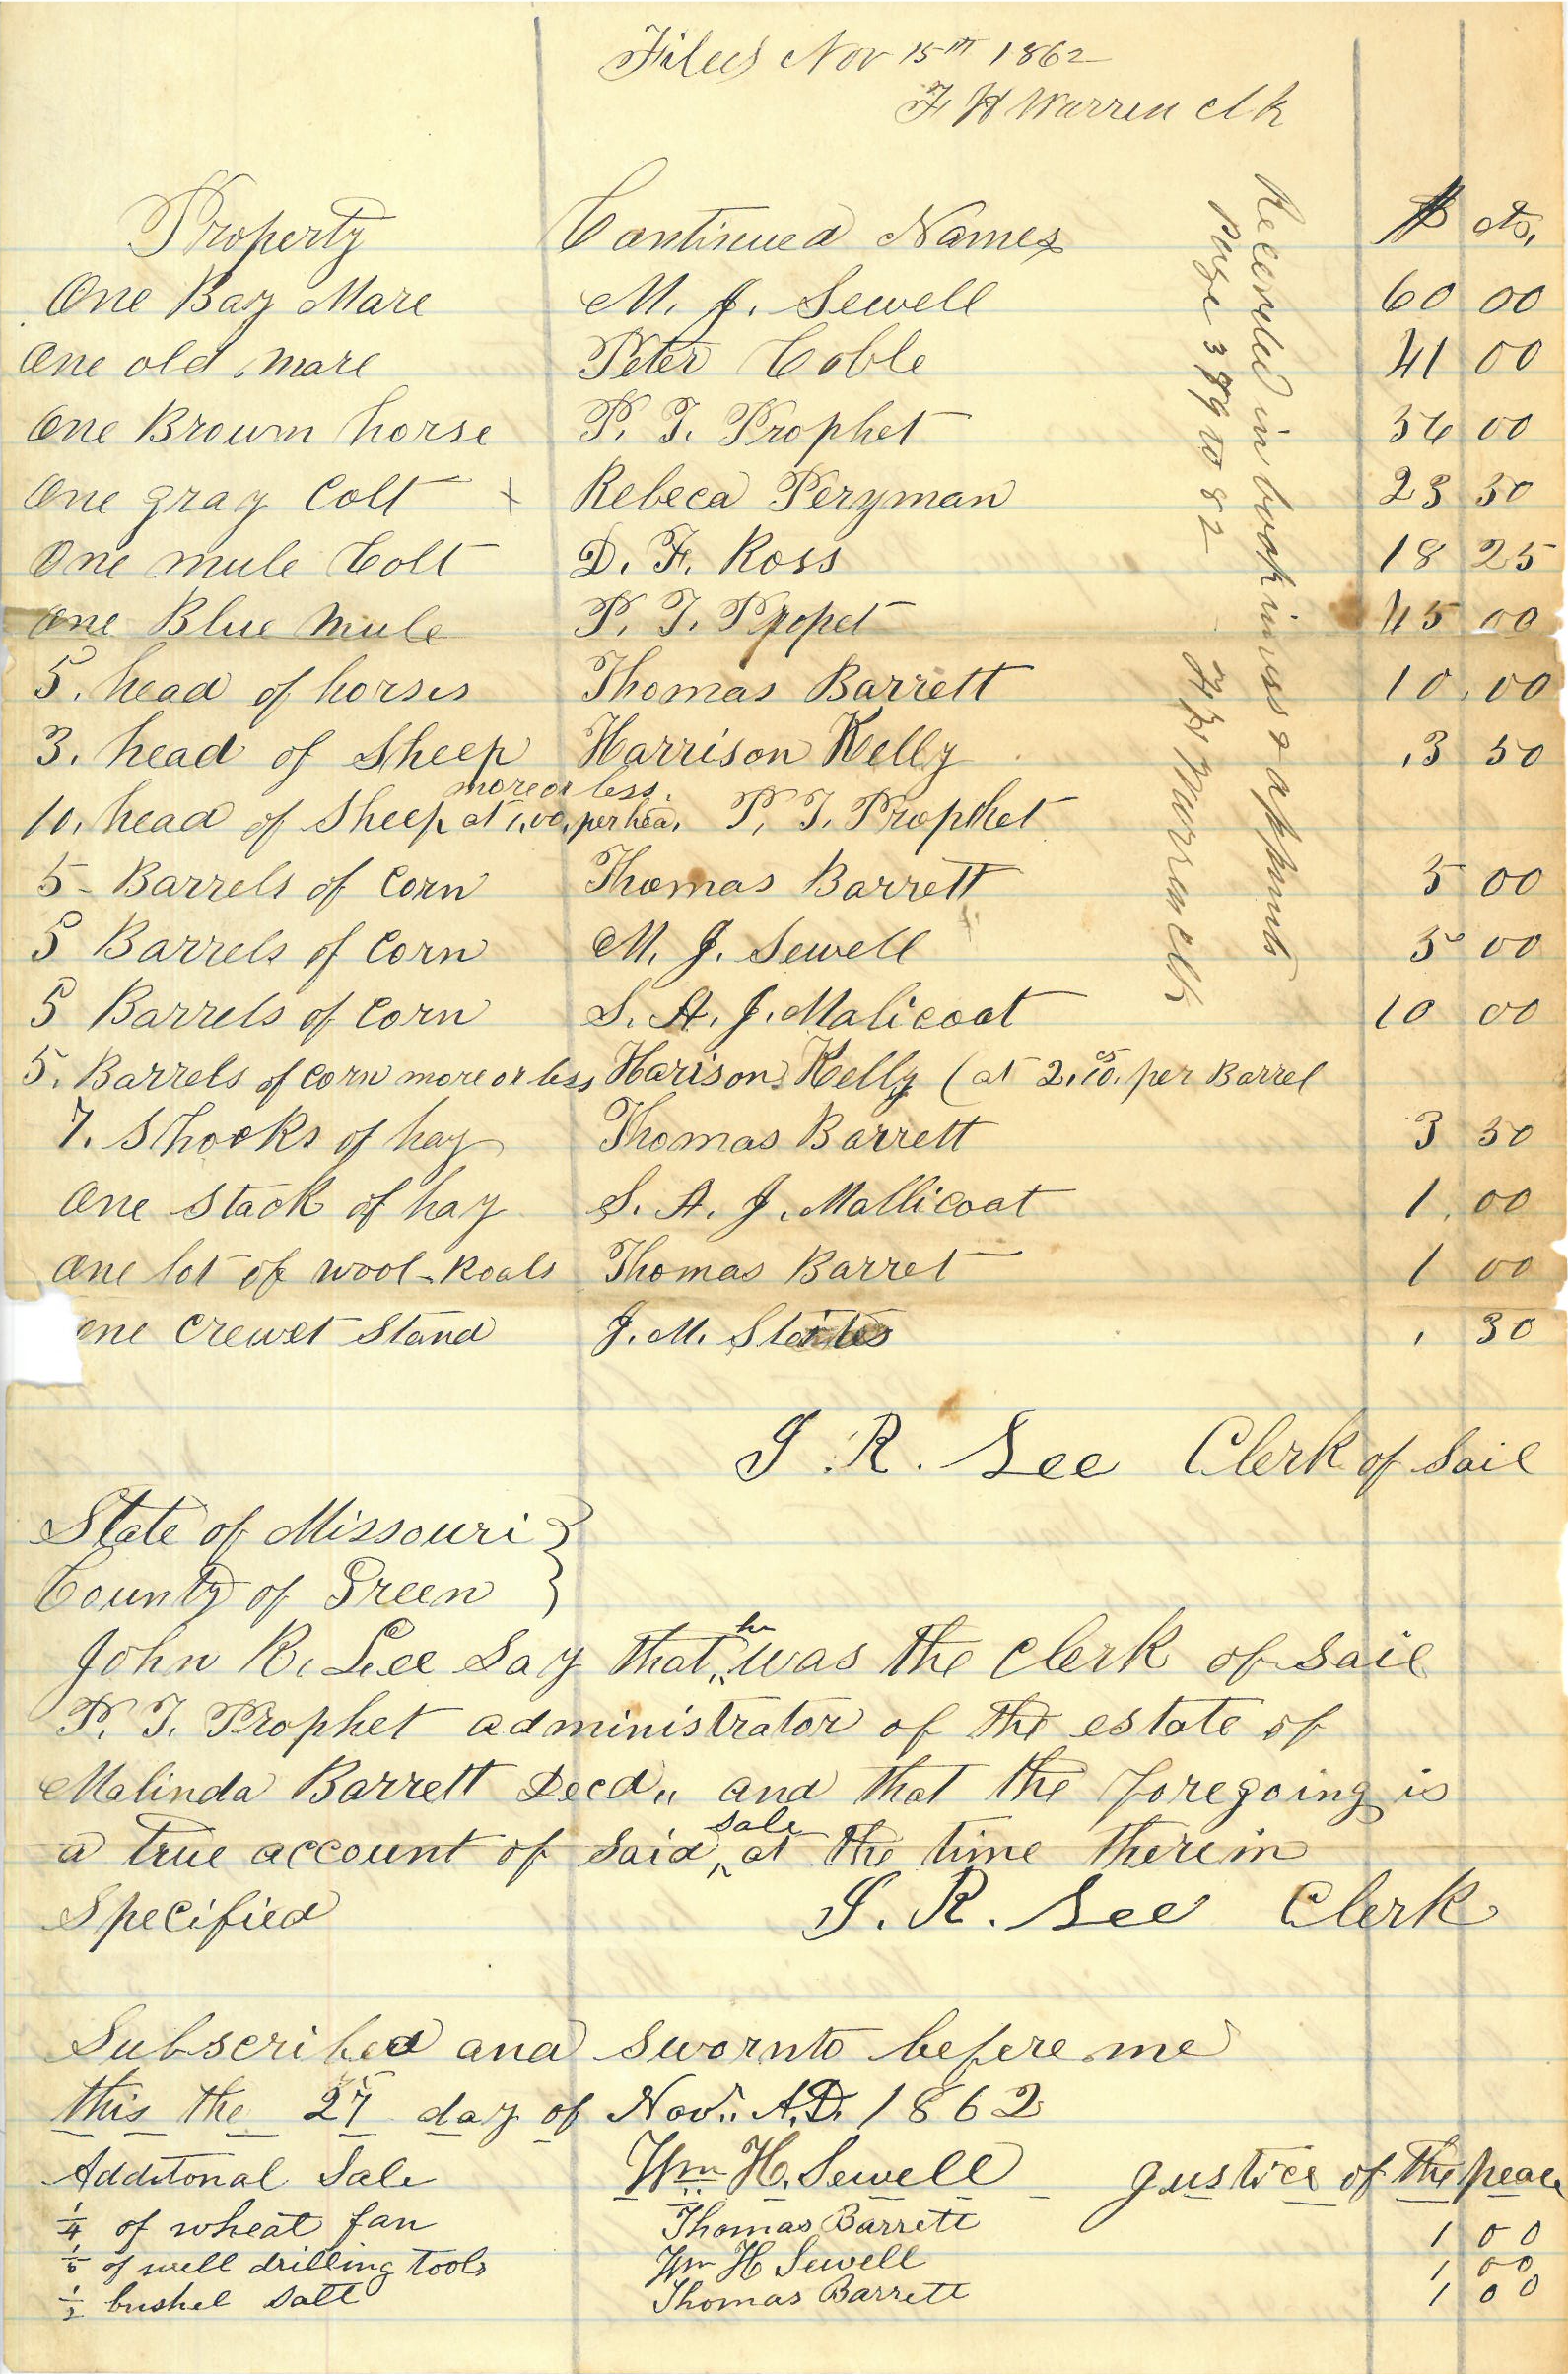 Filed Nov 15th 1862
F H Warren clk
Property Continued Names $ cts.
One Bay Mare M. J. Sewell 60 00
One old mare Peter Coble 41 00
One Brown horse P. T. Prophet 00
One gray Colt x Rebeca Peryman 23 50
One mule Colt D. F. Ross 18 25
One Blue Mule P. T. Propet 45 00
5. head of horses Thomas Barrett 10.00
3. head of Sheep Harrison Kelly 3 50
more or less.
10. head of Sheep at 1,00, per hea. P. T. Prophet
5 - Barrels of Corn Thomas Barrett 5 00
5 Barrels of Corn M. J. Sewell 5 00
5 Barrels of Corn S. A. J. Malicoat 10 00
5. Barrels of Corn more or less Harison Kelly (at 2. per Barrel
7. Shocks of hay Thomas Barrett 3 50
One Stack of hay S. A. J. Mallicoat 1.00
One lot of wool-Roals Thomas Barret 1 00
one crewet Stand J. M. 30
Recorded in book invs & apprmts
Page to 82 F H Warren clk
J. R. See Clerk of Sail
State of Missouri }
County of Green }
John R. See Say that he was the Clerk of Sail
P. T. Prophet administrator of the estate of
Malinda Barrett Decd,, and that the foregoing is
a true account of Said sale at the time therein
Specified J. R. See Clerk
Subscribed and sworn to before me
this the day of Nov.. A.D. 1862
Additonal Sale Wm H. Sewell Justice of the peace
1/4 of wheat fan Thomas Barrett 1 00
of well drilling tools Wm H Sewell 1 00
1/2 bushel Salt Thomas Barrett 1 00